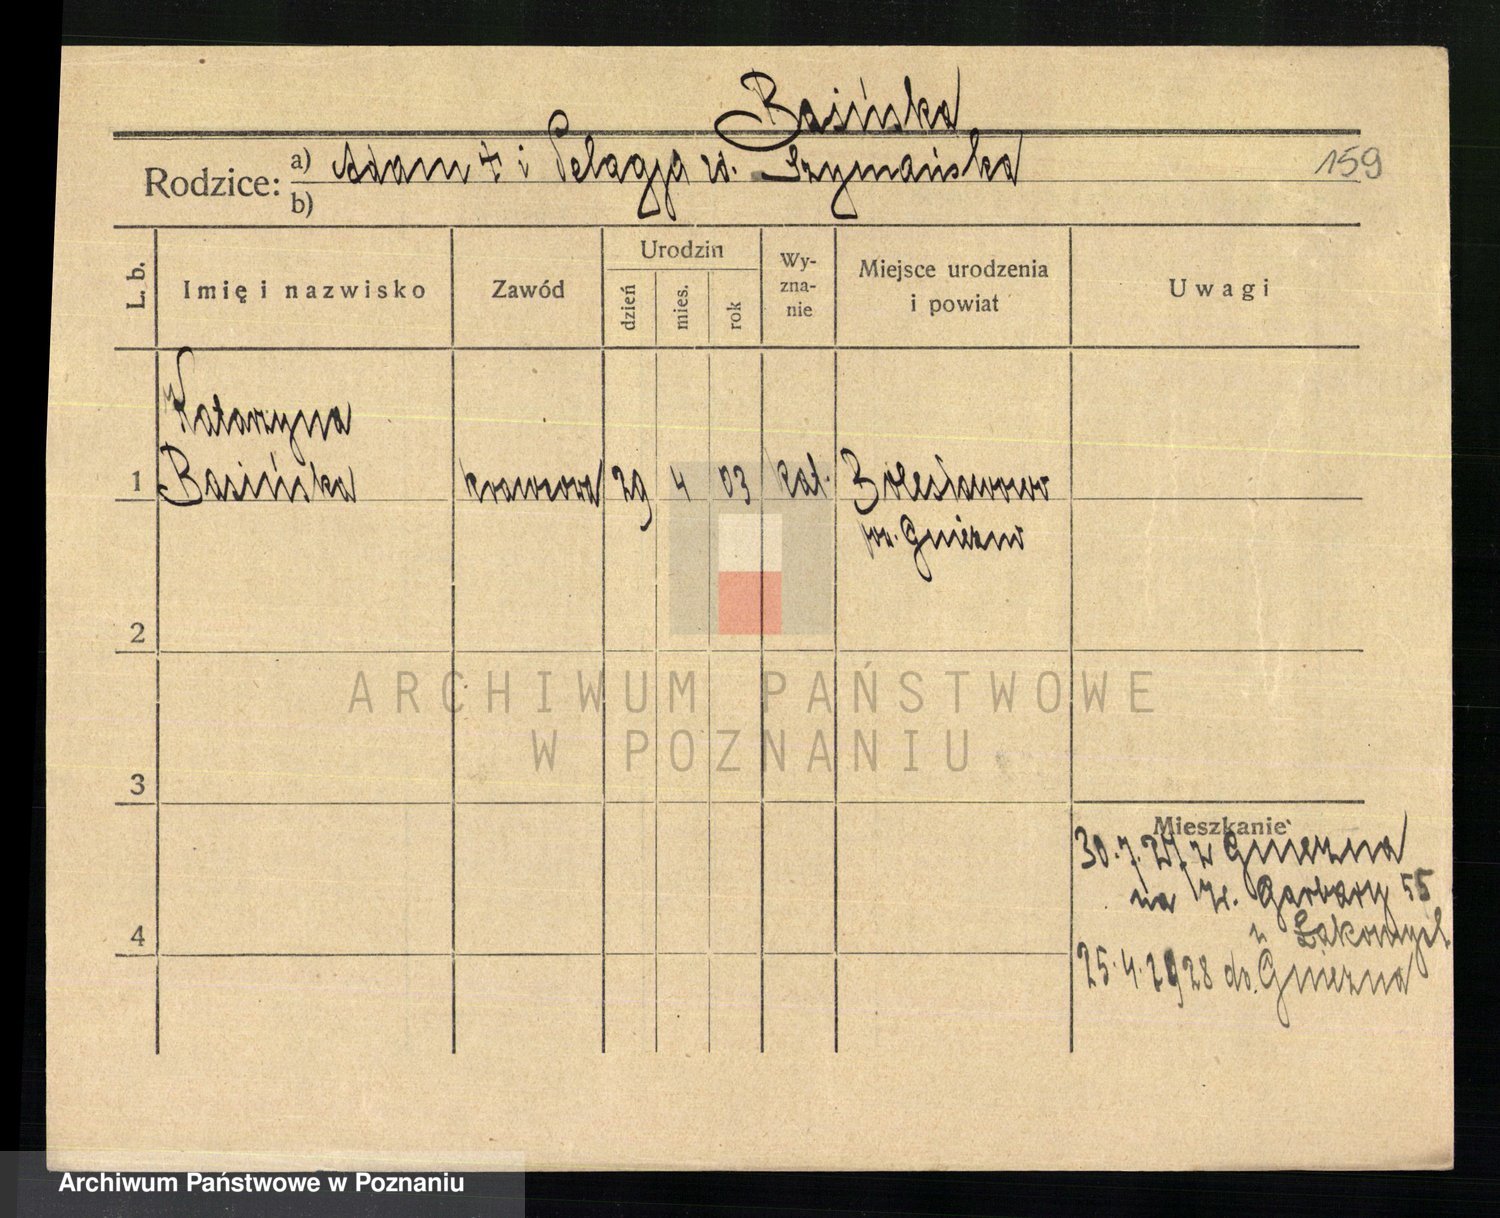 Basińska
Rodzice: a) Adam + i Pelagja zd. Szymańska
b)
159
L. b. Imię i nazwisko Zawód Urodzin dzień mies. rok Wy-zna-nie Miejsce urodzenia i powiat Uwagi
Katarzyna
1 Basińska krawcowa 29 4 03 kat. Bolesławowo
pow. Gniezno
2
3
Mieszkanie
30.7.27 z Gniezna
na W. Garbary 55
u
4
25.4.1928 do Gniezna
ARCHIWUM PAŃSTWOWE
W POZNANIU
Archiwum Państwowe w Poznaniu